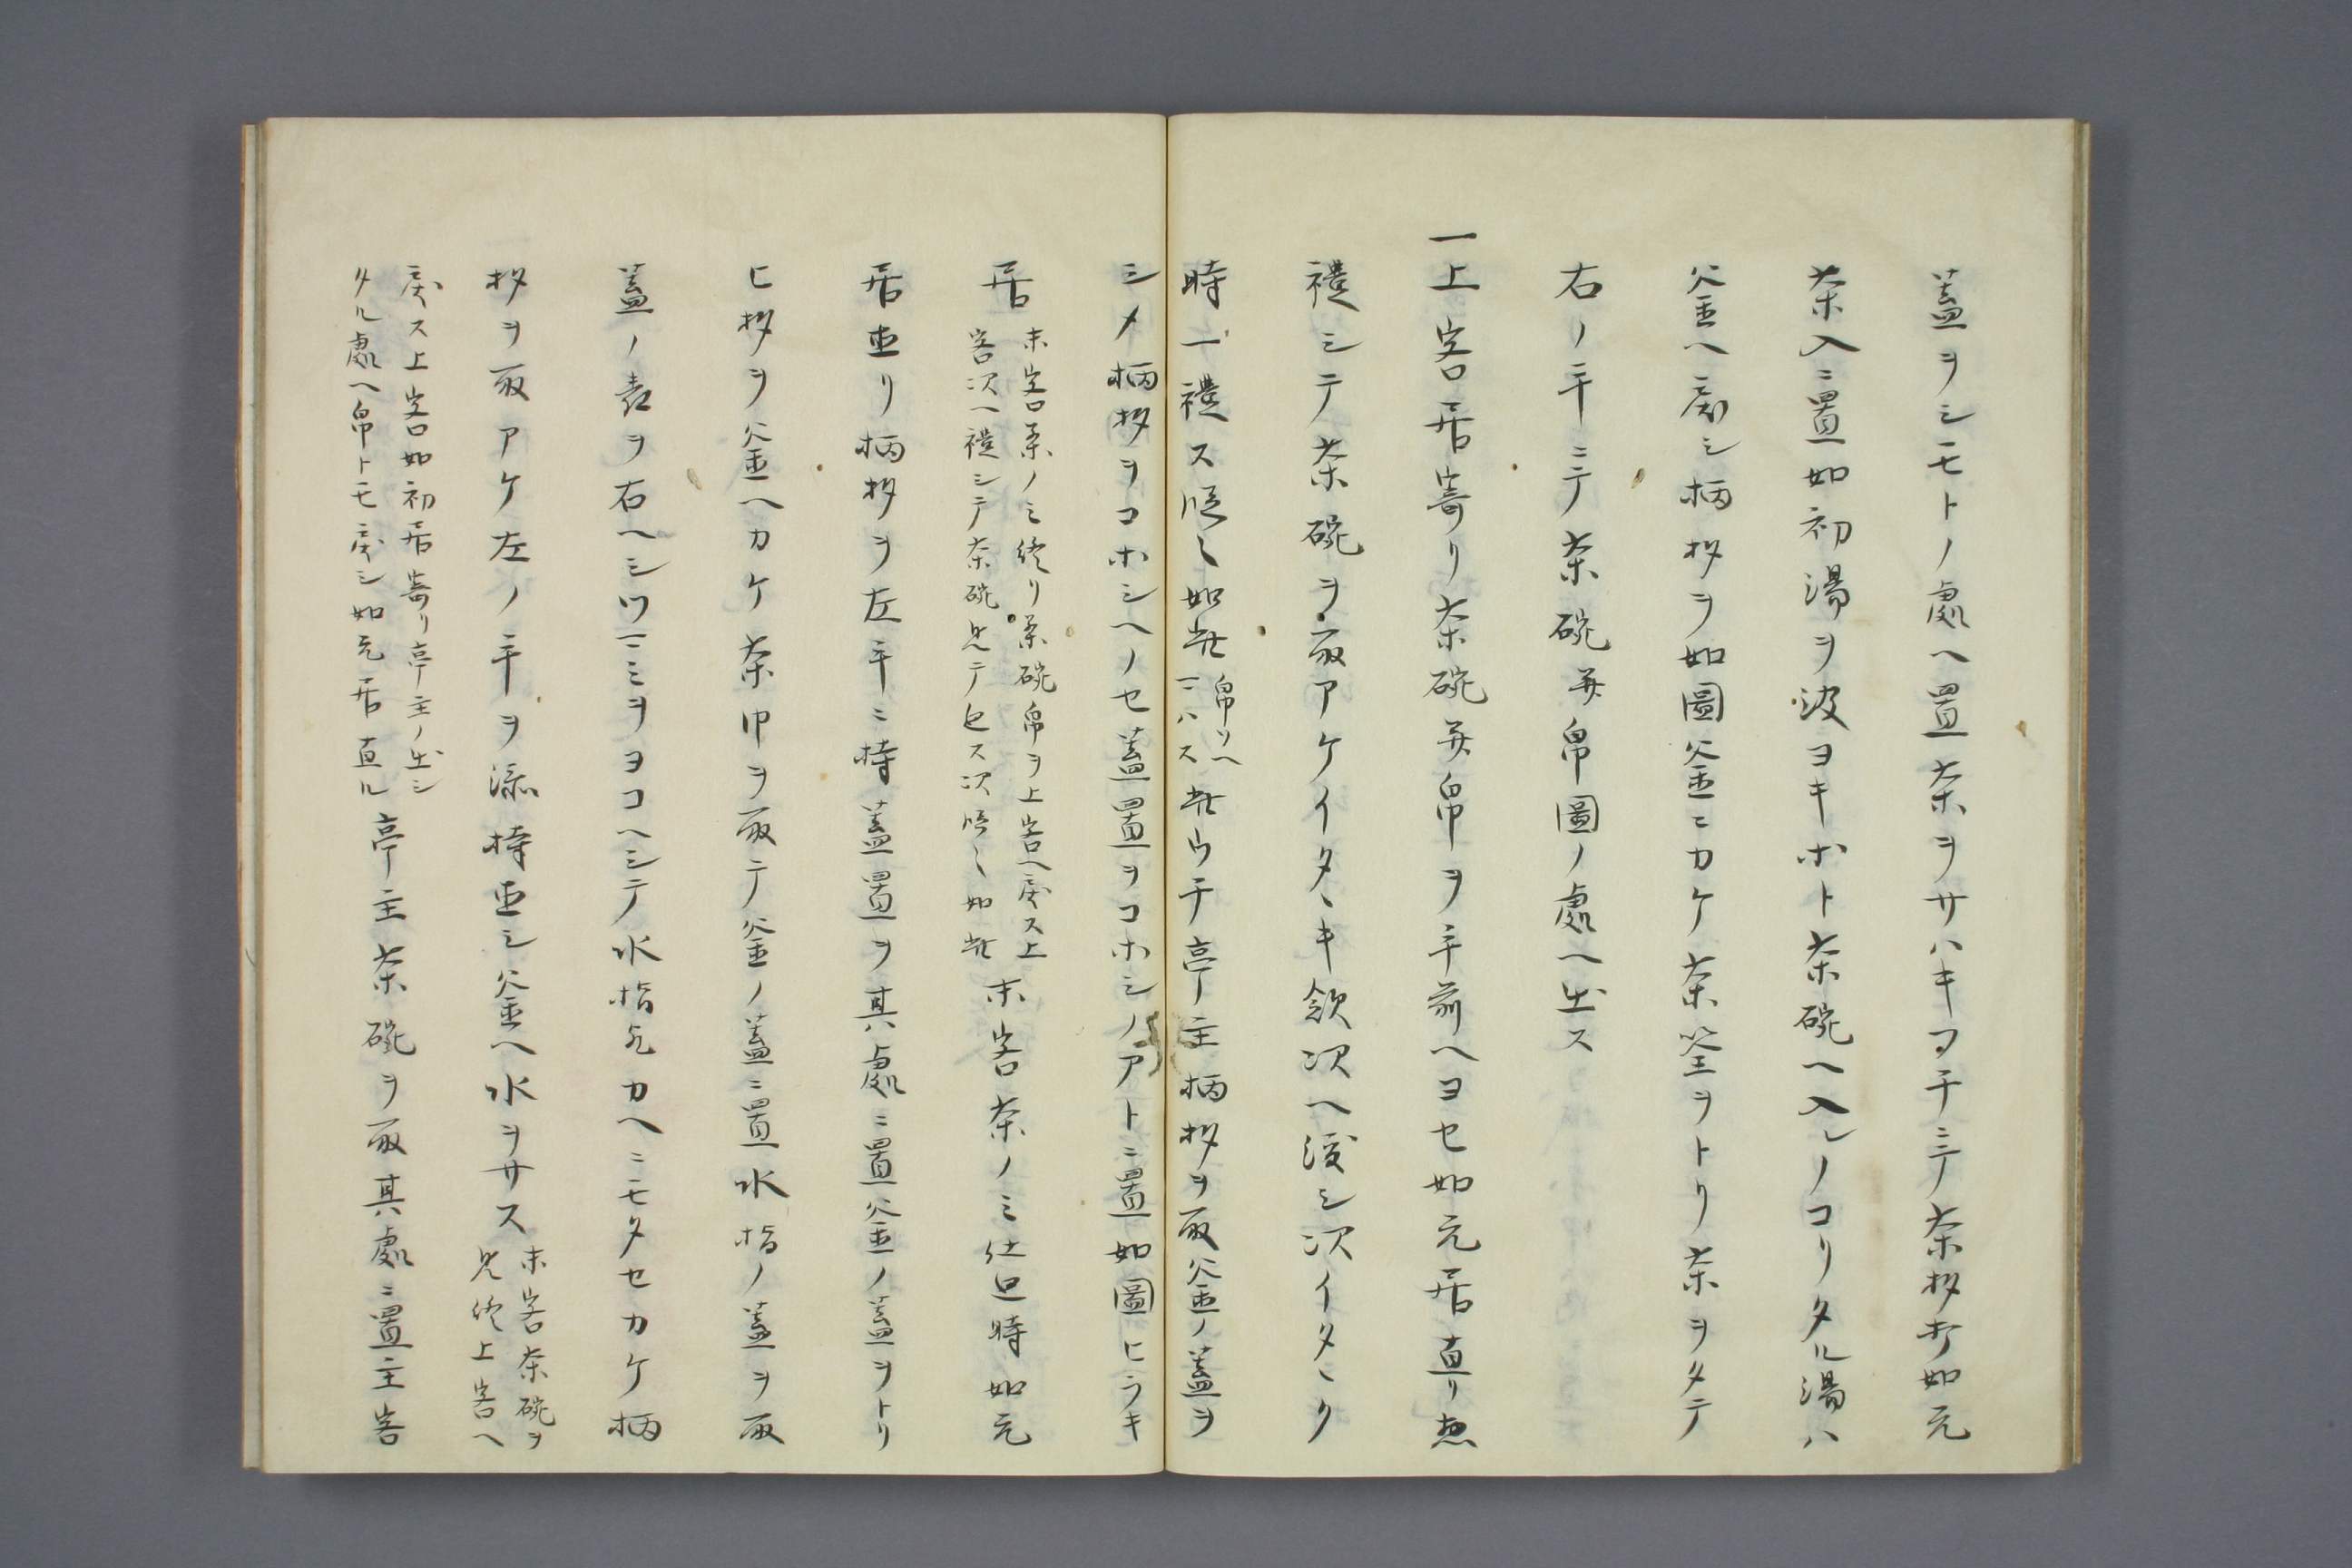 蓋ヲシモトノ處ヘ置茶ヲサハキコチニテ茶杓ヲ如元
茶入ニ置如初湯ヲ汲ヨキホト茶碗ヘ入レノコリタル湯ハ
釜ヘ戻シ柄杓ヲ如圖釜ニカケ茶筌ヲトリ茶ヲタテ
右ノ手ニテ茶碗并帛圖ノ處ヘ出ス
一上客居寄リ茶碗并帛ヲ手前ヘヨセ如元居直リ惣
禮シテ茶碗ヲ取アケイタヽキ飲次ヘ渡シ次イタヽク
時一禮ス順〻如此帛ソヘマハス此ウチ亭主柄杓ヲ取釜ノ蓋ヲ
シメ柄杓ヲコホシヘノセ蓋置ヲコホシノアトニ置如圖ヒラキ
居
末客茶ノミ終リ茶碗帛ヲ上客ヘ戻ス上
客次ヘ禮シテ茶碗見テ廻ス次順〻如此
末客茶ノミ仕廻時如元
居直リ柄杓ヲ左手ニ持蓋置ヲ其處ニ置釜ノ蓋ヲトリ
ヒ杓ヲ釜ヘカケ茶巾ヲ取テ釜ノ蓋ニ置水指ノ蓋ヲ取
蓋ノ表ヲ右ヘシツマミヲヨコヘシテ水指ヘカヘニモタセカケ柄
杓ヲ取アケ左ノ手ヲ添持直シ釜ヘ水ヲサス
末客茶碗ヲ
見終上客ヘ
戻ス上客如初居寄リ亭主ノ出シ
タル處ヘ帛トモ戻シ如元居直ル
亭主茶碗ヲ取其處ニ置主客